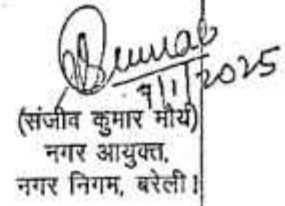 9/1/2025
(संजीव कुमार मौर्य)
नगर आयुक्त,
नगर निगम, बरेली।